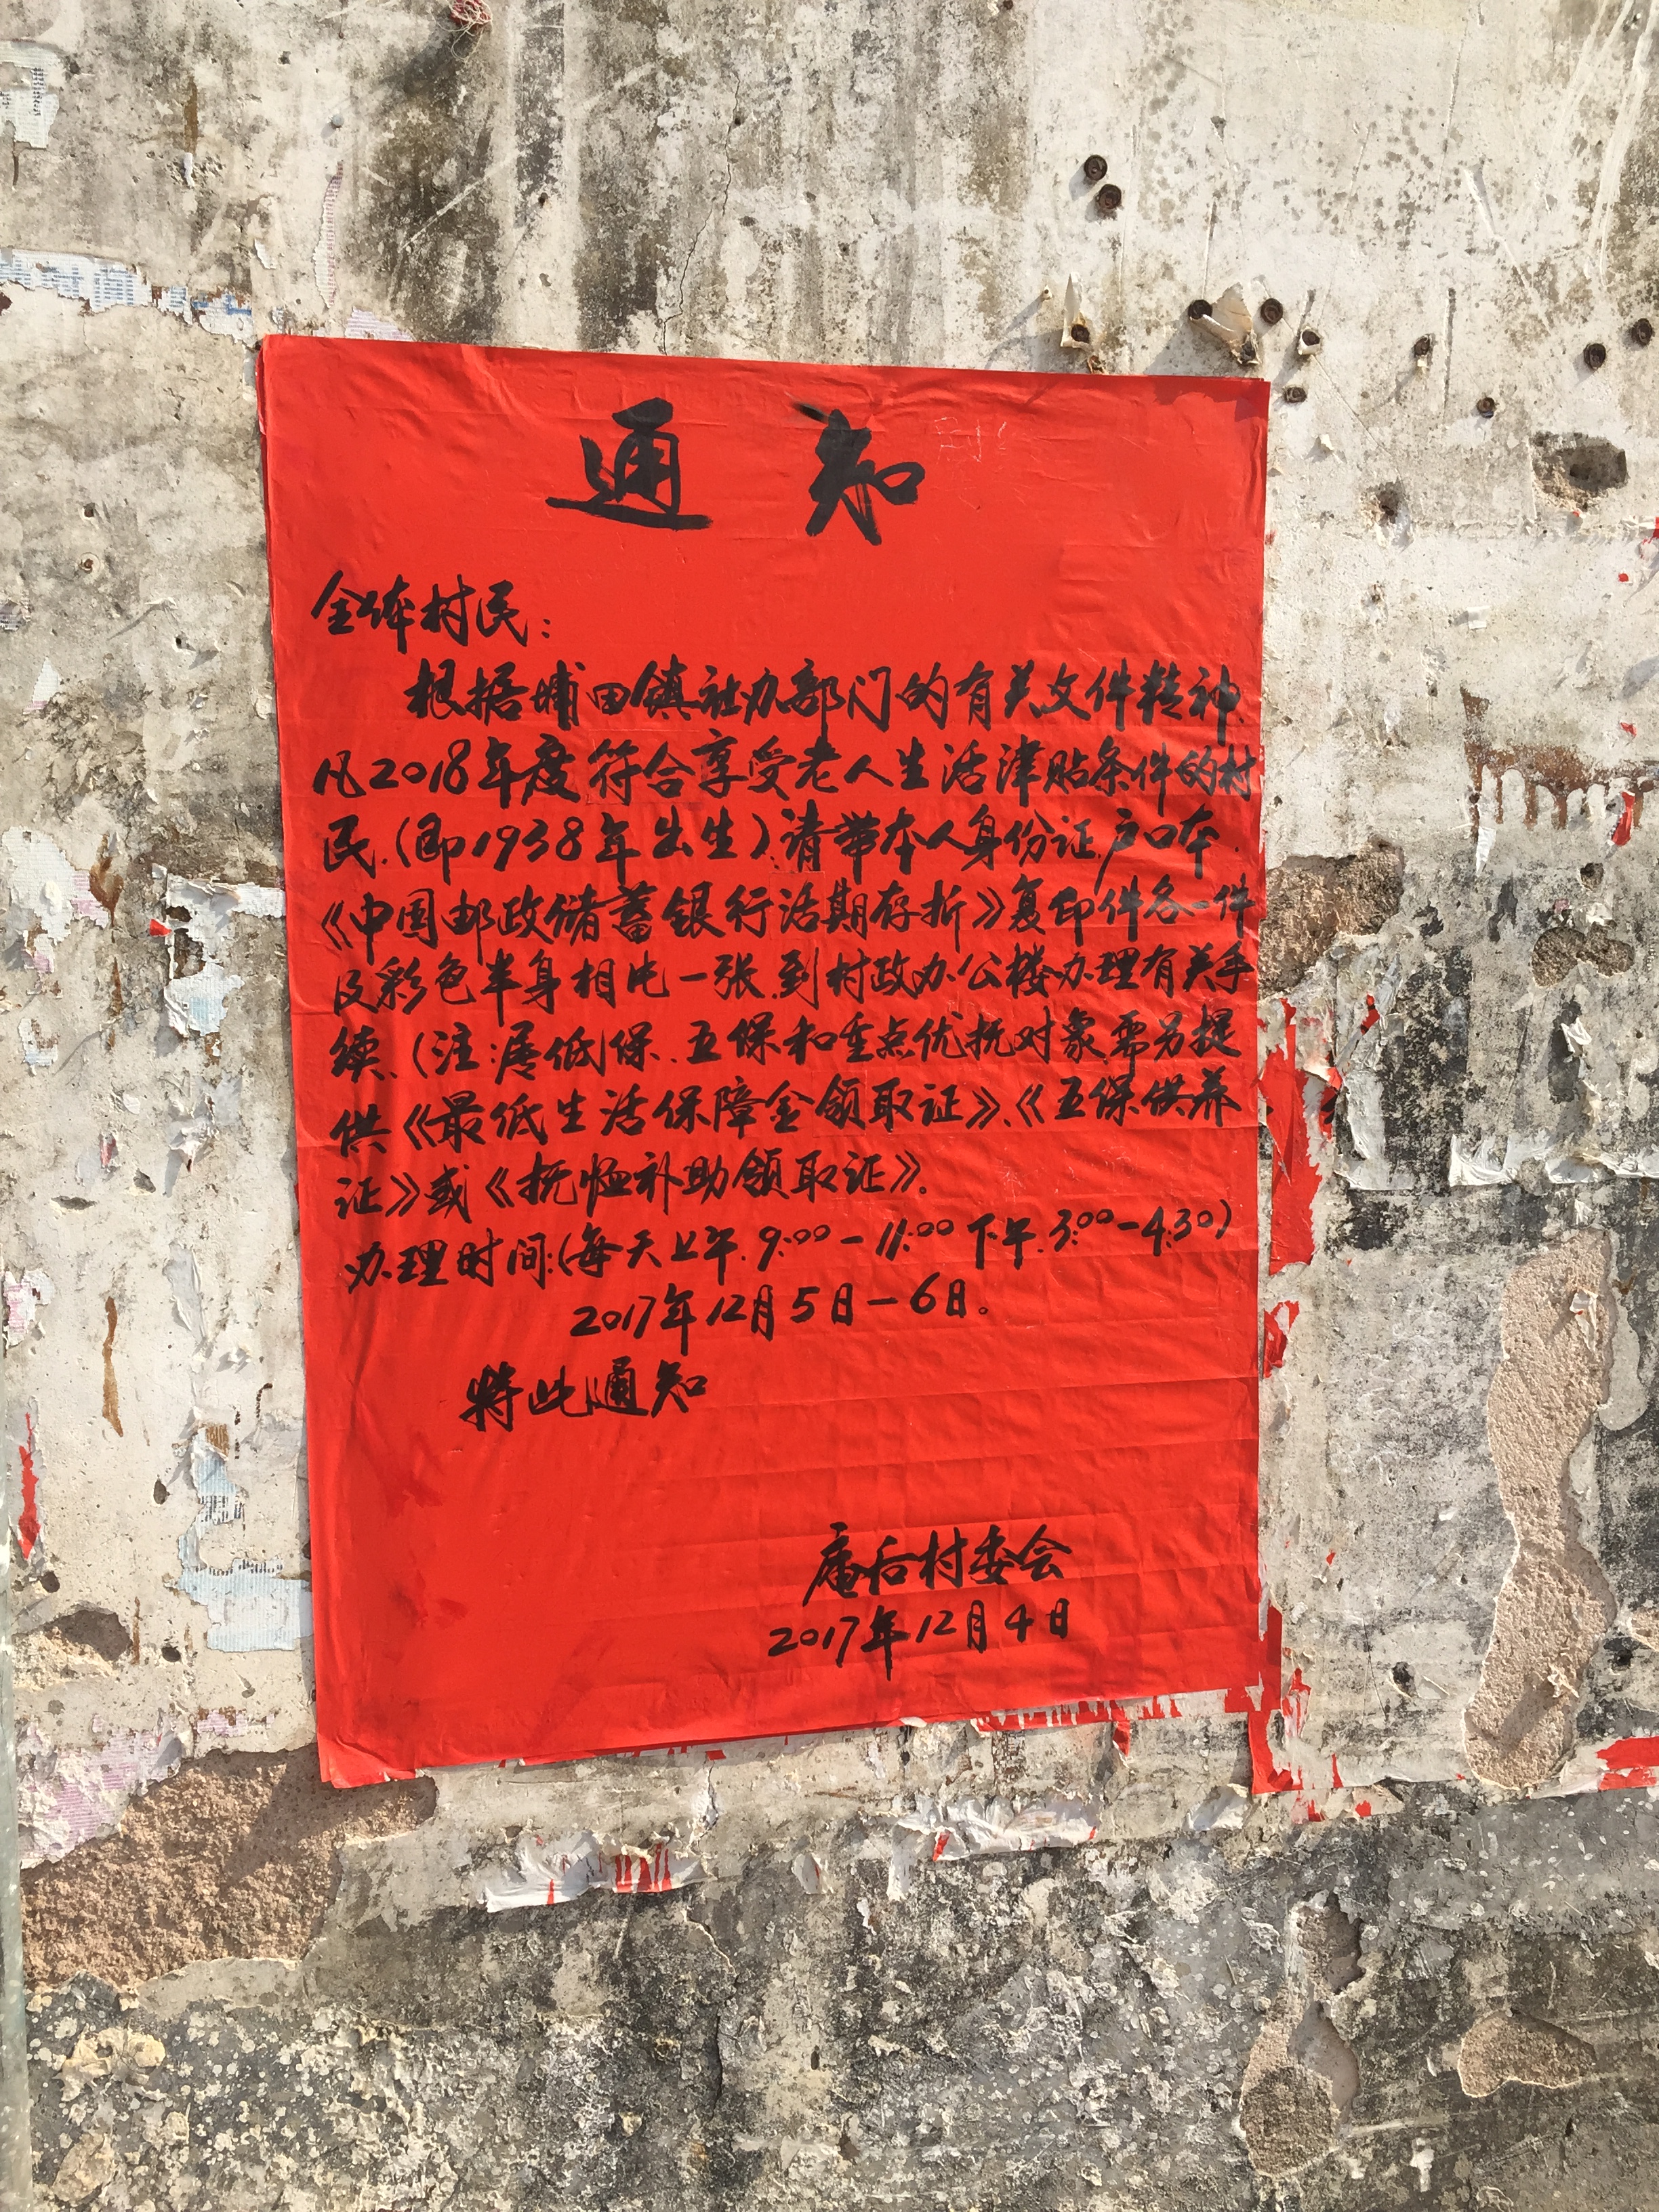 通知
全体村民:
根据埔田镇社办部门的有关文件精神、
凡2018年度符合享受老人生活津贴条件的村
民.(即1938年出生).请带本人身份证.户口本.
《中国邮政储蓄银行活期存折》复印件各一件
及彩色半身相片一张.到村政办公楼办理有关手
续.(注:属低保.五保和重点优抚对象需另提
供《最低生活保障金领取证》、《五保供养
证》或《抚恤补助领取证》.
办理时间:(每天上午.9:00-11:00 下午.3:00-4:30)
2017年12月5日-6日。
特此通知
庵后村委会
2017年12月4日